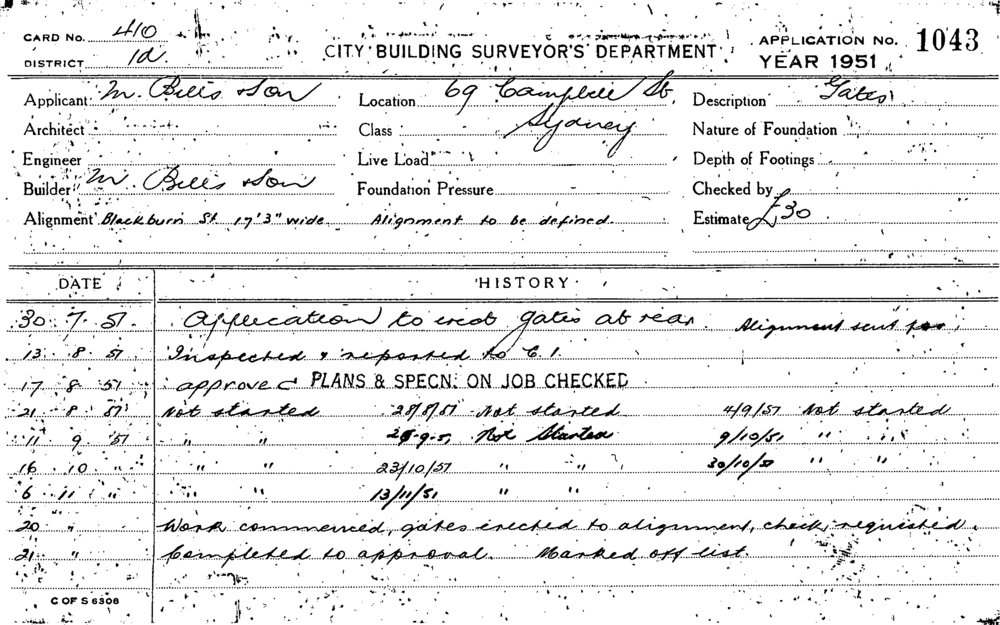 CARD No. 410
DISTRICT 1d
CITY BUILDING SURVEYOR'S DEPARTMENT
APPLICATION No. 1043
YEAR 1951
Applicant M. Bills & Son Location 69 Campbell St. Description Gates
Architect Class Sydney Nature of Foundation
Engineer Live Load Depth of Footings
Builder M. Bills & Son Foundation Pressure Checked by
Alignment Blackburn St 17'3" wide Alignment to be defined. Estimate £30
DATE HISTORY
30 7 51 Application to erect gates at rear. Alignment sent for
13 8 51 Inspected & reported to C.I.
17 8 51 approved PLANS & SPECN. ON JOB CHECKED
21 8 51 Not started 28/8/51 Not started 4/9/51 Not started
11 9 51 " " Not Started 9/10/51 " "
16 10 " " " 23/10/51 " " 30/10/51 " "
6 11 " " " 13/11/51 " "
20 " Work commenced, gates erected to alignment, check requested.
21 " Completed to approval. Marked off list.
C OF S 6308